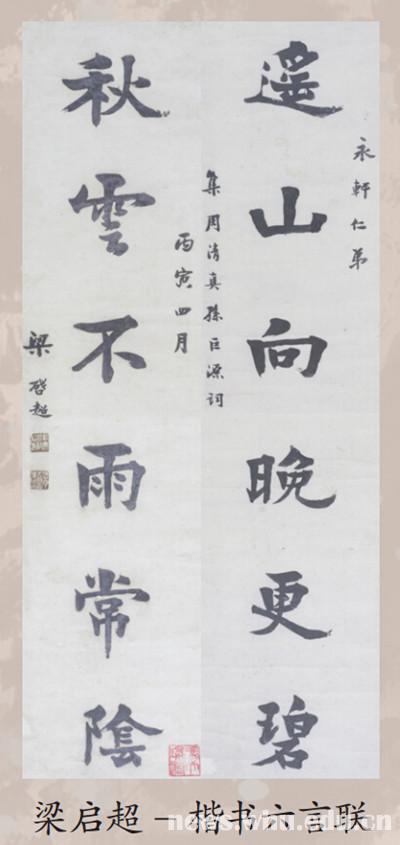 永軒仁弟
遥山向晚更碧
集周清真孫巨源詞
丙寅四月
秋雲不雨常陰
梁啓超
梁启超 – 楷书六言联
news.whu.edu.cn